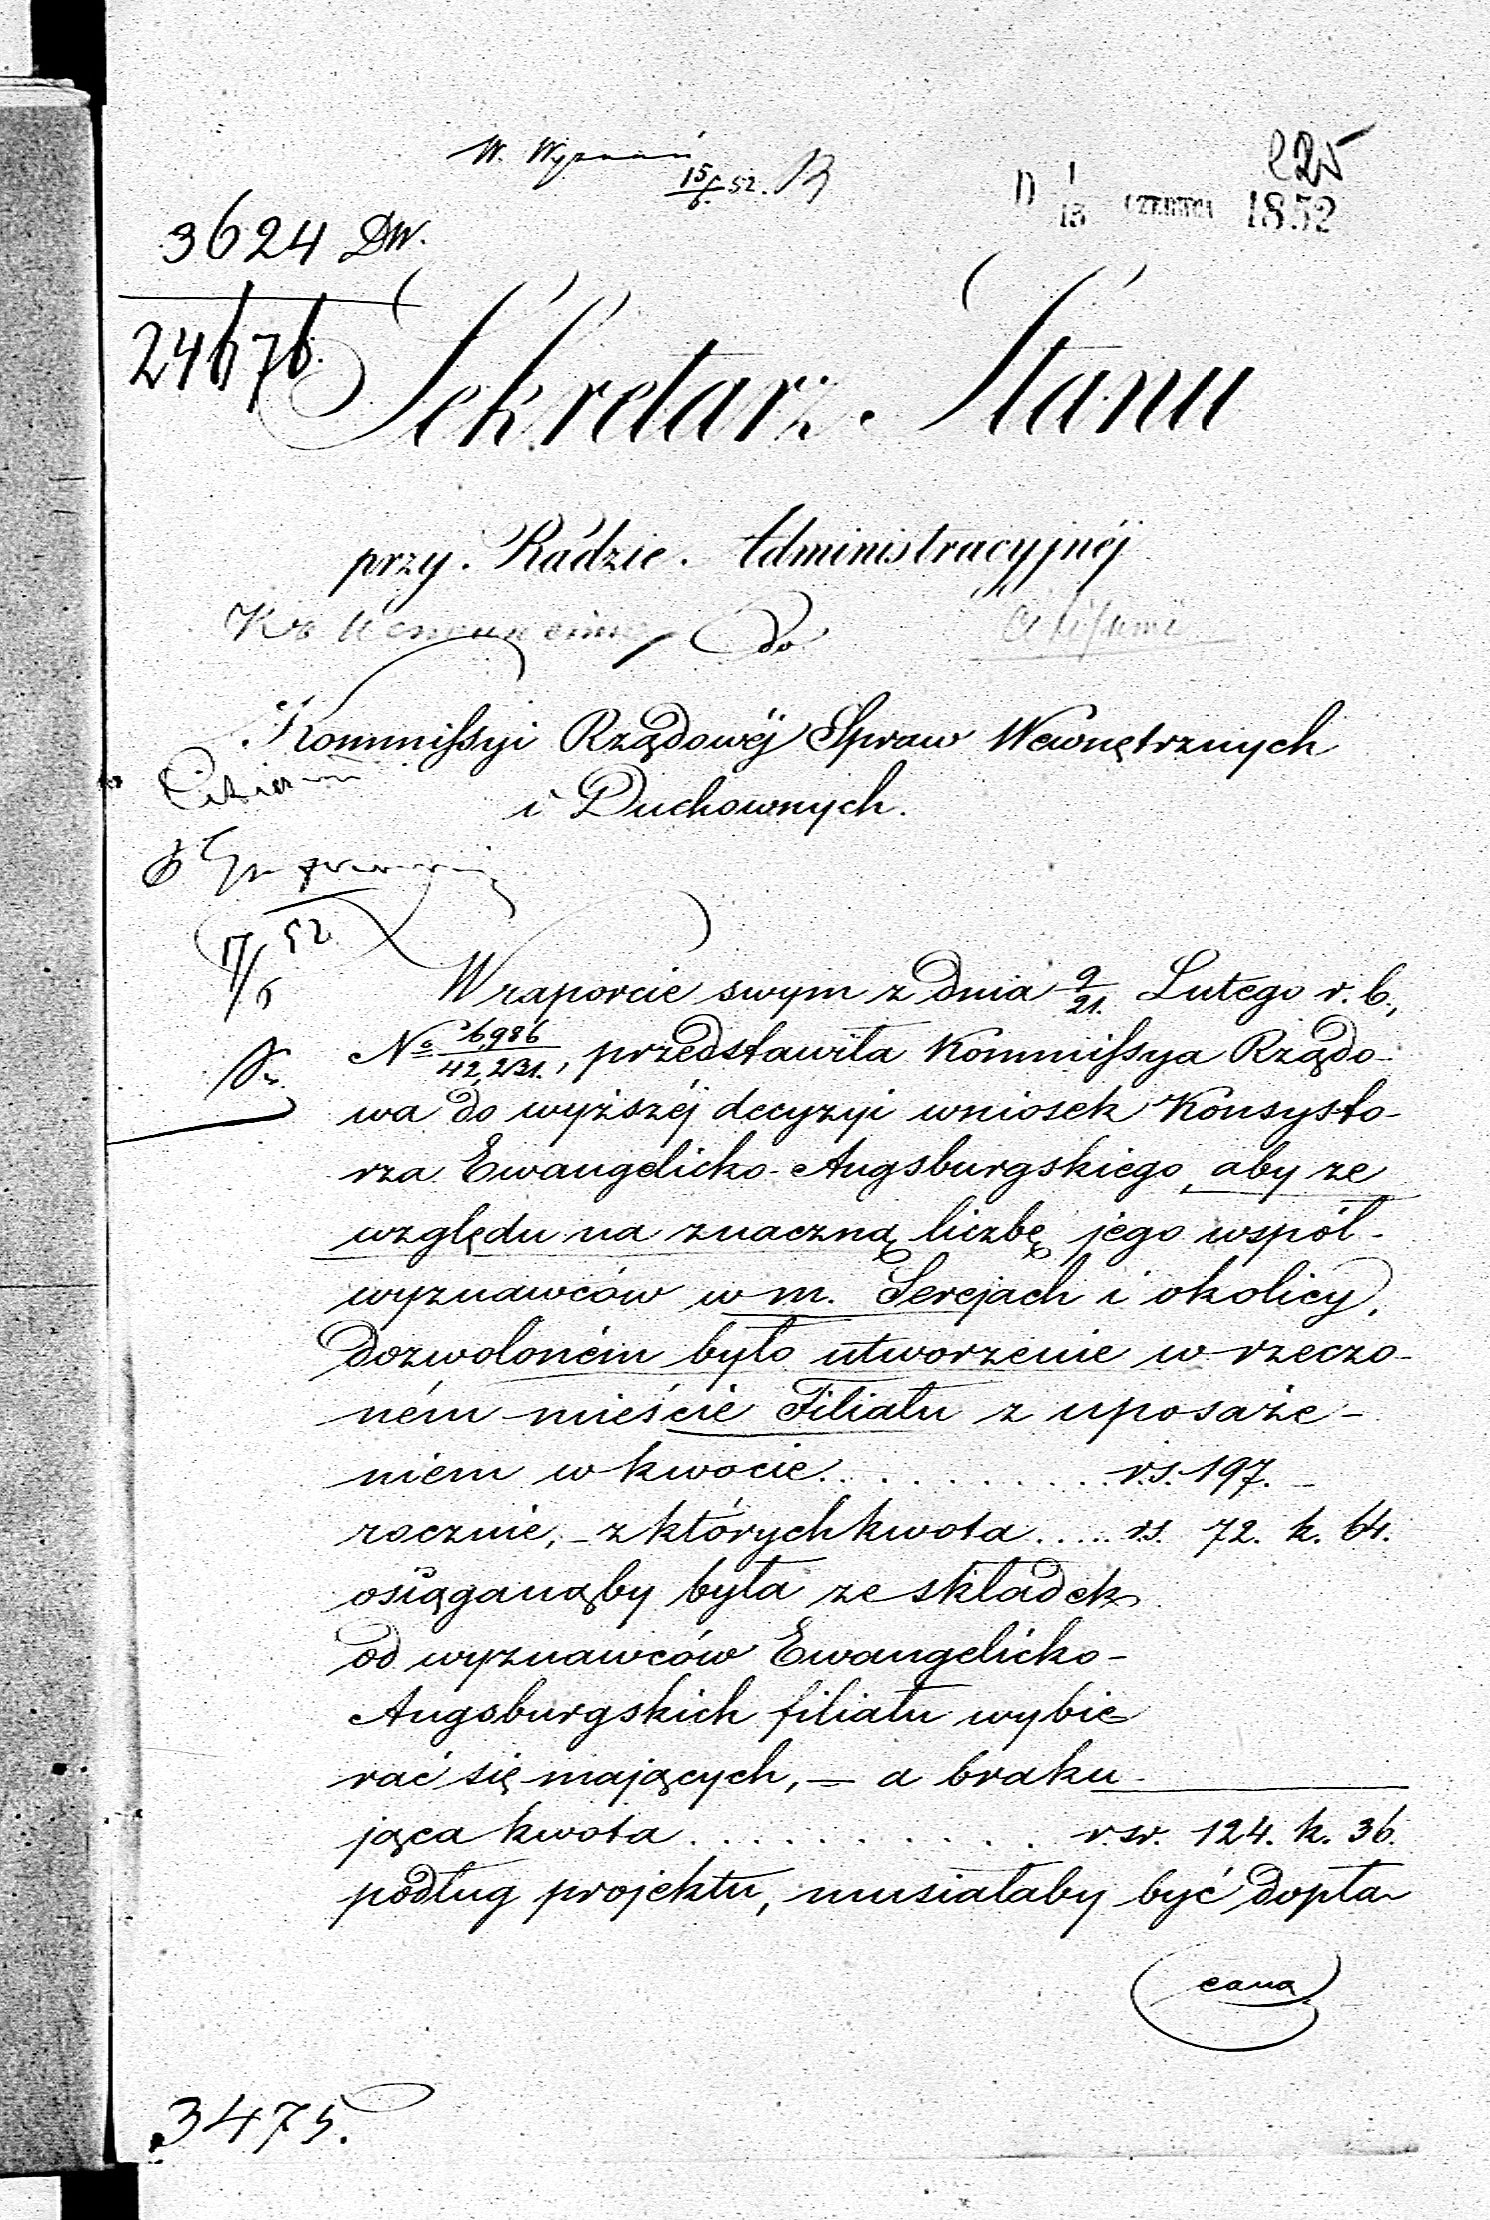 225
W. Wyznań
15/6 52.
D 1/13 CZERWCA 1852
3624 DW.
24676.
Sekretarz Stanu
przy Radzie Administracyjnéj
do
Kommissyi Rządowéj Spraw Wewnętrznych
i Duchownych.
17/6 52
W raporcie swym z dnia 9/21. Lutego r. b.,
No 6,986/42,231., przedstawiła Kommissya Rządo-
wa do wyższéj decyzyi wniosek Konsysto-
rza Ewangelicko-Augsburgskiego, aby ze
względu na znaczną liczbę jego współ-
wyznawców w m. Serejach i okolicy,
dozwoloném było utworzenie w rzeczo-
ném mieście Filiału z uposaże-
niem w kwocie . . . . . . . . . . r.s. 197. –
rocznie, – z których kwota ..... r.s. 72. k. 64.
osiąganąby była ze składek
od wyznawców Ewangelicko-
Augsburgskich filiału wybie
rać się mających, – a braku
jąca kwota . . . . . . . . . . . r.sr. 124. k. 36.
podług projektu, musiałaby być dopła-
caną
3475.